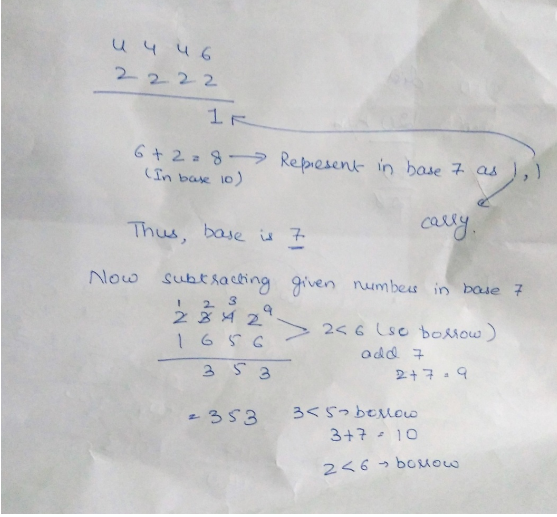 4 4 4 6
2 2 2 2
1
6 + 2 = 8 → Represent in base 7 as 1,1
(In base 10)
carry.
Thus, base is 7
Now subtracting given numbers in base 7
1 2 3 9
2 3 4 2
1 6 5 6
3 5 3
2<6 (so borrow)
add 7
2+7=9
= 353
3<5→borrow
3+7=10
2<6→borrow